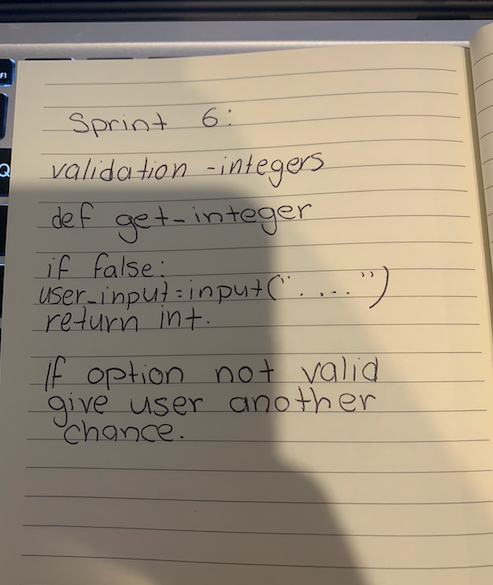 Sprint 6:
validation -integers
def get-integer
if false:
user_input = input(".....")
return int.
If option not valid
give user another
chance.